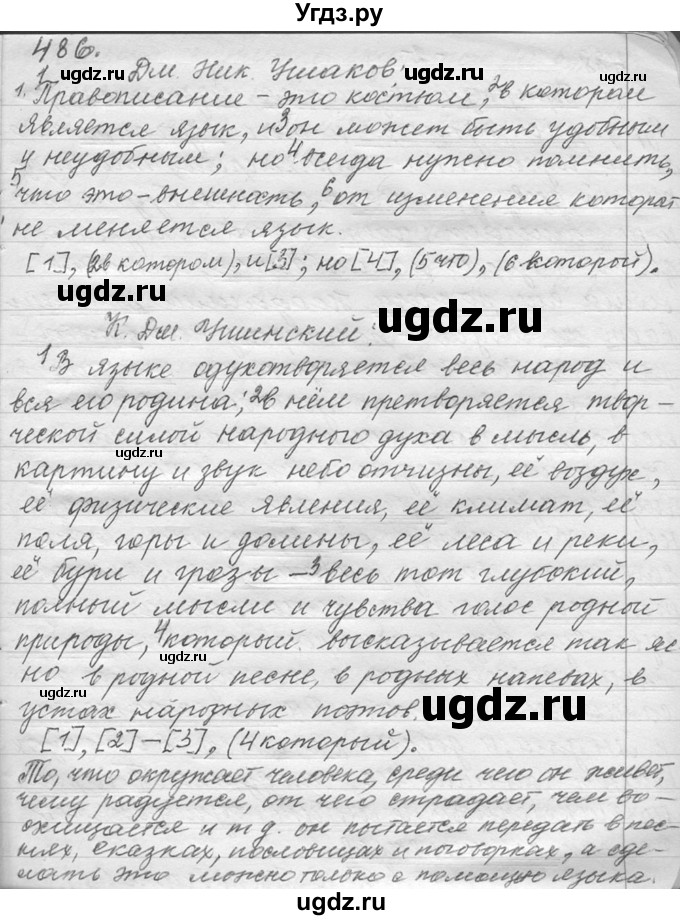 Угдз.ру
486.
Дм. Ник. Ушаков:
1. Правописание – это костюм, 2в котором
является язык, и 3он может быть удобным
и неудобным; но 4всегда нужно помнить,
5что это – внешность, 6от изменения которой
не меняется язык.
[1], (2в котором), и [3]; но [4], (5что), (6который).
ugdz.ru
К. Дм. Ушинский:
1В языке одухотворяется весь народ и
вся его родина; 2в нём претворяется твор-
ческой силой народного духа в мысль, в
картину и звук небо отчизны, её воздух,
её физические явления, её климат, её
поля, горы и долины, её леса и реки,
её бури и грозы – 3весь тот глубокий,
полный мысли и чувства голос родной
природы, 4который высказывается так яс
но в родной песне, в родных напевах, в
устах народных поэтов.
[1], [2] – [3], (4который).
То, что окружает человека, среди чего он живёт,
чему радуется, от чего страдает, чем во-
схищается и т д. он пытается передать в пес-
нях, сказках, пословицах и поговорках, а сде-
лать это можно только с помощью языка.
ugdz.ru